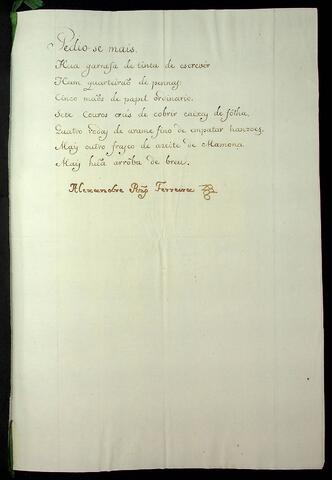 Pedio se mais.
Hũa garrafa de tinta de escrever
Hum quarteiraõ de pennas.
Cinco maõs de papel ordinario.
Sete Couros crús de cobrir caixas de fôlha,
Quatro rodas de arame fino de empatar hanzoes.
Mais outro frasco de azeite de Mamona.
Mais hũa arrôba de breu.
Alexandre Roiz Ferreira